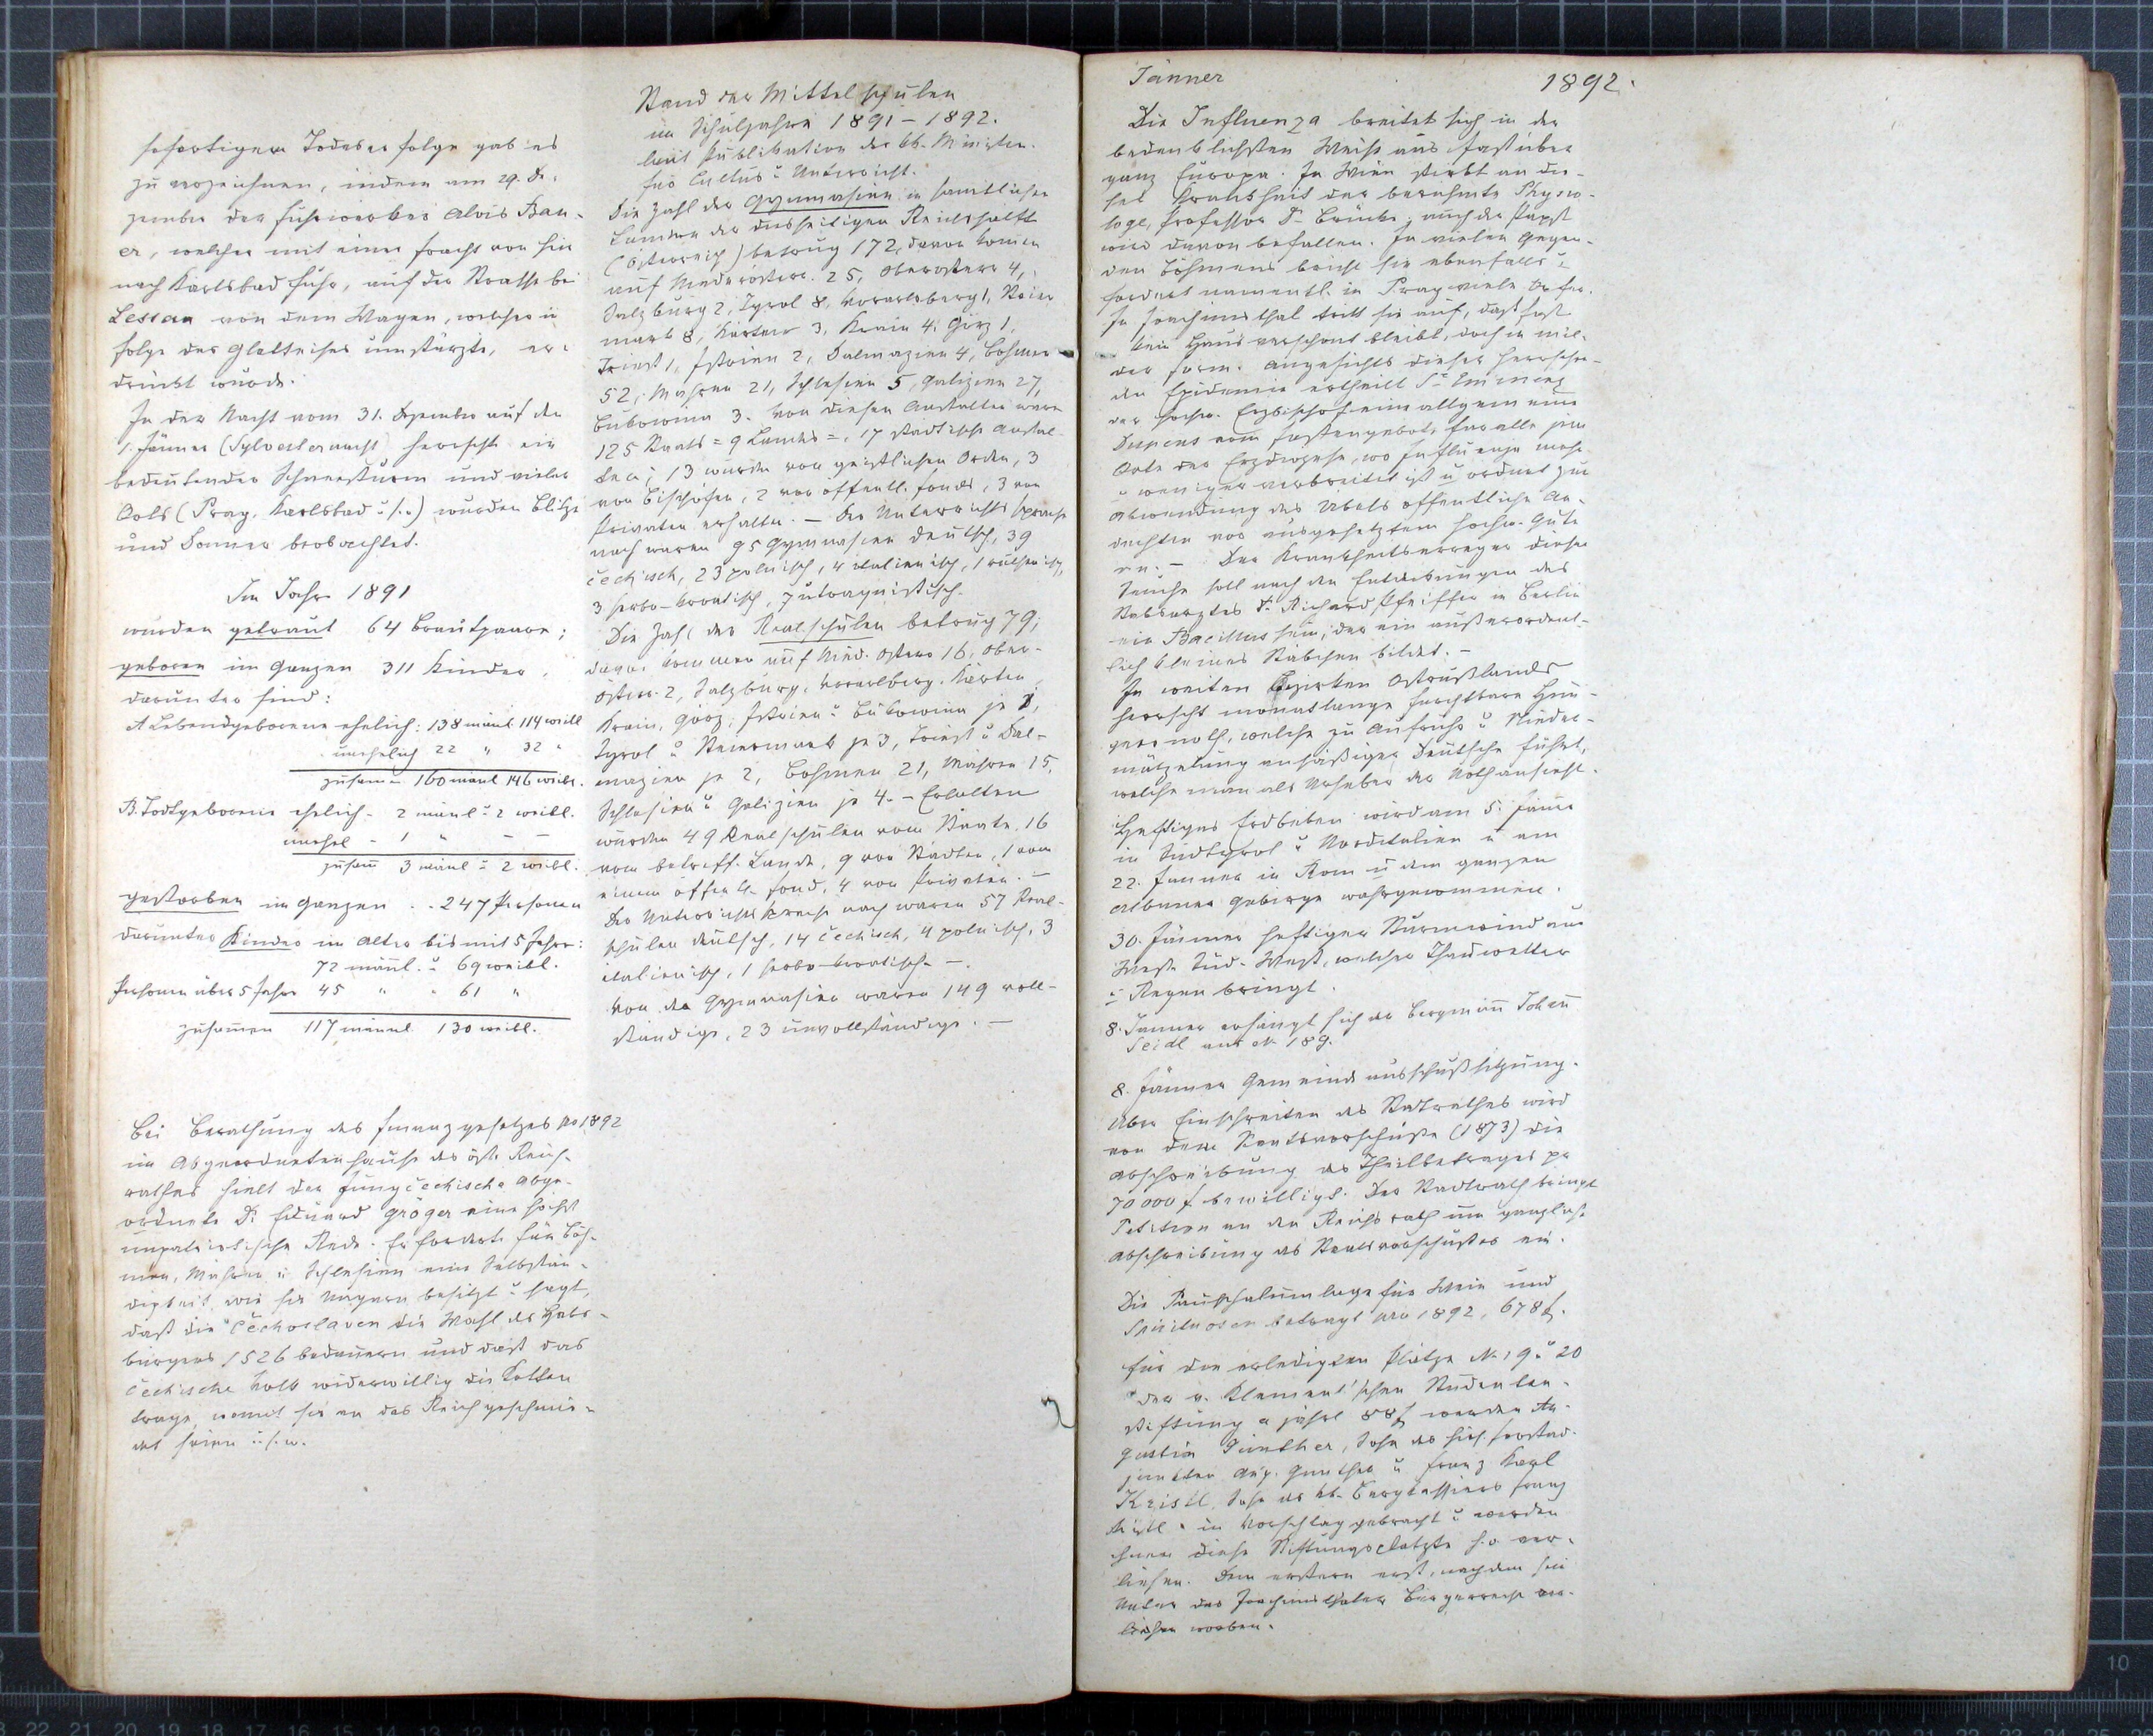 sofortigem Todeserfolge gab es
zu verzeichnen, indem am 29. De-
zember der Fuhrwerker Alois Bau-
er, welcher mit einer Fracht von hier
nach Karlsbad fuhr, auf der Strasse bei
Lessau von dem Wagen, welcher in
folge des Glatteises umstürzte, er-
drückt wurde.
In der Nacht vom 31. Dezember auf den
1. Jänner (Sylvesternacht) herrscht ein
bedeutender Schneesturm und vieler
Orts (Prag, Karlsbad u. s. w.) wurden Blitze
und Donner beobachtet.
Im Jahre 1891
wurden getraut 64 Brautpaare;
geboren im Ganzen 311 Kinder,
darunter sind:
A Lebendgeborene ehelich: 138 männl 114 weibl
unehelich 22 " 32 "
zusamen 160 männl 146 weibl.
B. Todtgeborene ehelich - 2 männl u 2 weibl.
unehel - 1 " — —
zusam̅ 3 männl u 2 weibl.
gestorben im Ganzen . . 247 Personen
darunter Kinder im Alter bis mit 5 Jahre:
72 männl. u 69 weibl.
Personen über 5 Jahre 45 " " 61 "
zusam̅en 117 männl 130 weibl.
Bei Berathung des Finanzgesetzes pro 1892
im Abgeordnetenhause des öst. Reichs-
rathes hielt der jungčechische Abge-
ordnete Dr Eduard Gröger eine höchst
unpatriotische Rede. Er fordert für Böh-
men, Mähren u Schlesien eine Selbstän-
digkeit, wie sie Ungarn besitzt u sagt,
daß die Čechoslaven die Wahl des Habs-
burgers 1526 bedauern und daß das
čechische Volk widerwillig die Ketten
trage, womit sie an das Reich geschmie-
det seien u. s. w.
Stand der Mittelschulen
im Schuljahre 1891 – 1892.
laut Publikation des kk. Minister.
für Cultus u Unterricht.
Die Zahl der Gymnasien in sämtlichen
Ländern der diesseitigen Reichshälfte
(Österreich) betrug 172, davon kom̅en
auf Niederösterr. 25, Oberösterr 4,
Salzburg 2, Tyrol 8, Vorarlsberg 1, Steier
mark 8, Kärten 3, Krain 4, Görz 1,
Triest 1, Istrien 2, Dalmazien 4, Böhmen
52, Mähren 21, Schlesien 5, Galizien 27,
Bukowina 3. Von diesen Anstalten waren
125 Staats= 9 Landes=, 17 städtische Anstal-
ten; 13 wurden von geistlichen Orden, 3
von Bischöfen, 2 von öffentl. Fonds, 3 von
Privaten erhalten. — Der Unterrichtssprache
nach waren 95 Gymnasien deutsch, 39
čechisch, 23 polnisch, 4 italienisch, 1 ruthenisch,
3 serbo-kroatisch, 7 utraquistisch.
Die Zahl der Realschulen betrug 79;
davon kommen auf Nied. Österr 16, Ober-
österr. 2, Salzburg, Vorarlberg, Kärten
Krain, Görz, Istrien u Bukowina je 1,
Tyrol u Steiermark je 3, Triest u Dal-
mazien je 2, Böhmen 21, Mähren 15,
Schlesien u Galizien je 4. – Erhalten
wurden 49 Realschulen vom Staate, 16
vom betreff. Lande, 9 von Städten, 1 von
einem öffentl. Fond, 4 von Privaten. —
Der Unterrichtssprache nach waren 57 Real-
schulen deutsch, 14 čechisch, 4 polnisch, 3
italienisch, 1 serbo-kroatisch. —
Von den Gymnasien waren 149 voll-
ständige, 23 unvollständige. —
Jänner 1892.
Die Influenza breitet sich in der
bedenklichsten Weise aus fast über
ganz Europa. In Wien stirbt an die-
ser Krankheit der berühmte Physio-
loge, Professor Dr Brücke; auch der Papst
wird davon befallen. In vielen Gegen-
den Böhmens bricht sie ebenfalls u
fordert namentl. in Prag viele Opfer.
In Joachimsthal tritt sie auf, daß fast
kein Haus verschont bleibt, doch in mil-
der Form. Angesichts dieser herrschen-
den Epidemie ertheilt Se Eminenz
der hochw. Erzbischof eine allgemeine
Dispens vom Fastengebote für alle jene
Orte der Erzdiozese, wo Influenza mehr
u weniger verbreitet ist u ordnet zur
Abwendung des Übels öffentliche An-
dachten vor ausgesetztem hochw. Gute
an. — Der Krankheitserreger dieser
Seuche soll nach den Entdeckungen des
Stabsarztes Dr. Richard Pfeiffer in Berlin
ein Bacillus sein, der ein außerordent-
lich kleines Stäbchen bildet. —
In weiten Bezirken Ostrußlands
herrscht monatlange furchtbare Hun-
gersnoth, welche zu Aufruhr u Nieder-
mätzelung ansäßiger Deutsche führt,
welche man als Urheber der Noth ansieht.
Heftiges Erdbeben wird am 5. Jänner
in Südtyrol u Norditalien u am
22. Jänner in Rom u dem ganzen
Albaner Gebirge wahrgenommen.
30. Jänner heftiger Sturmwind aus
West. Süd-West, welcher Thauwetter
u Regen bringt.
8. Jänner erhängt sich der Bergman̅ Johan̅
Seidl aus No 189.
8. Jänner Gemeindeausschußsitzung.
Über Einschreiten des Stadtrathes wird
von dem Staatsvorschuße (1873) die
Abschreibung des Theilbetrages pr
70000 f bewilligt. Der Stadtrath bringt
Petition an den Reichsrath um gänzliche
Abschreibung des Staatsvorschußes ein.
Die Pauschalumlage für Wein und
Spirituosen beträgt pro 1892, 678 f.
Für die erledigten Plätze No 19 u 20
der v. Klement'schen Studenten-
stiftung a jährl 88 f werden Au-
gustin Günther, Sohn des hies. Forstad-
junkten Aug. Günther u Franz Karl
Kristl, Sohn des kk. Bergkassiers Franz
Kristl in Vorschlag gebracht u werden
ihnen diese Stiftungsplätze h. o. ver-
liehen. Dem erstern erst, nachdem sein
Vater das Joachimsthaler Bürgerrecht
worben.